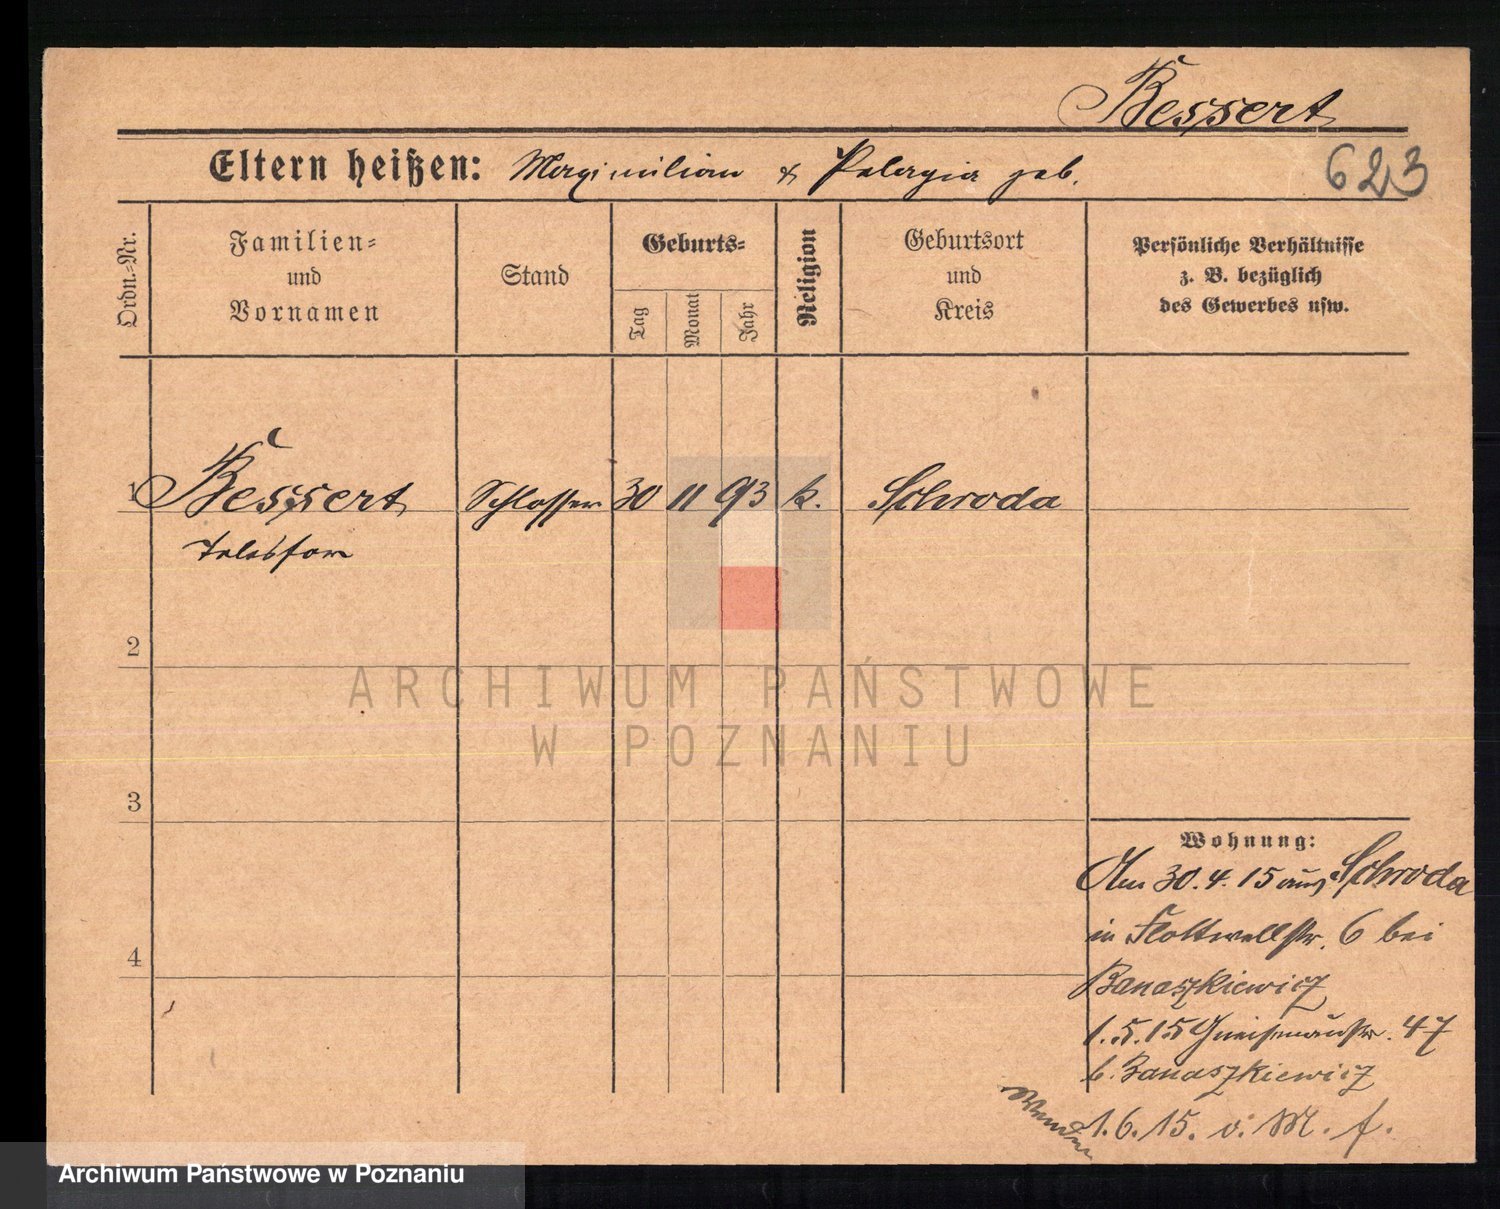 Bessert
Eltern heißen: Maximilian & Pelagia geb.
623
Ordn.=Nr.
Familien=
und
Vornamen
Stand
Geburts=
Tag
Monat
Jahr
Religion
Geburtsort
und
Kreis
Persönliche Verhältnisse
z. B. bezüglich
des Gewerbes usw.
1 Bessert Schlosser 30 11 93 k. Schroda
Telesfor
2
3
4
Wohnung:
Am 30.4.15 aus Schroda
in Flottwellstr. 6 bei
Banaszkiewicz
1.5.15 Gneisenaustr. 47
b. Banaszkiewicz
1.6.15. v. M. f.
Wenden
ARCHIWUM PAŃSTWOWE
W POZNANIU
Archiwum Państwowe w Poznaniu